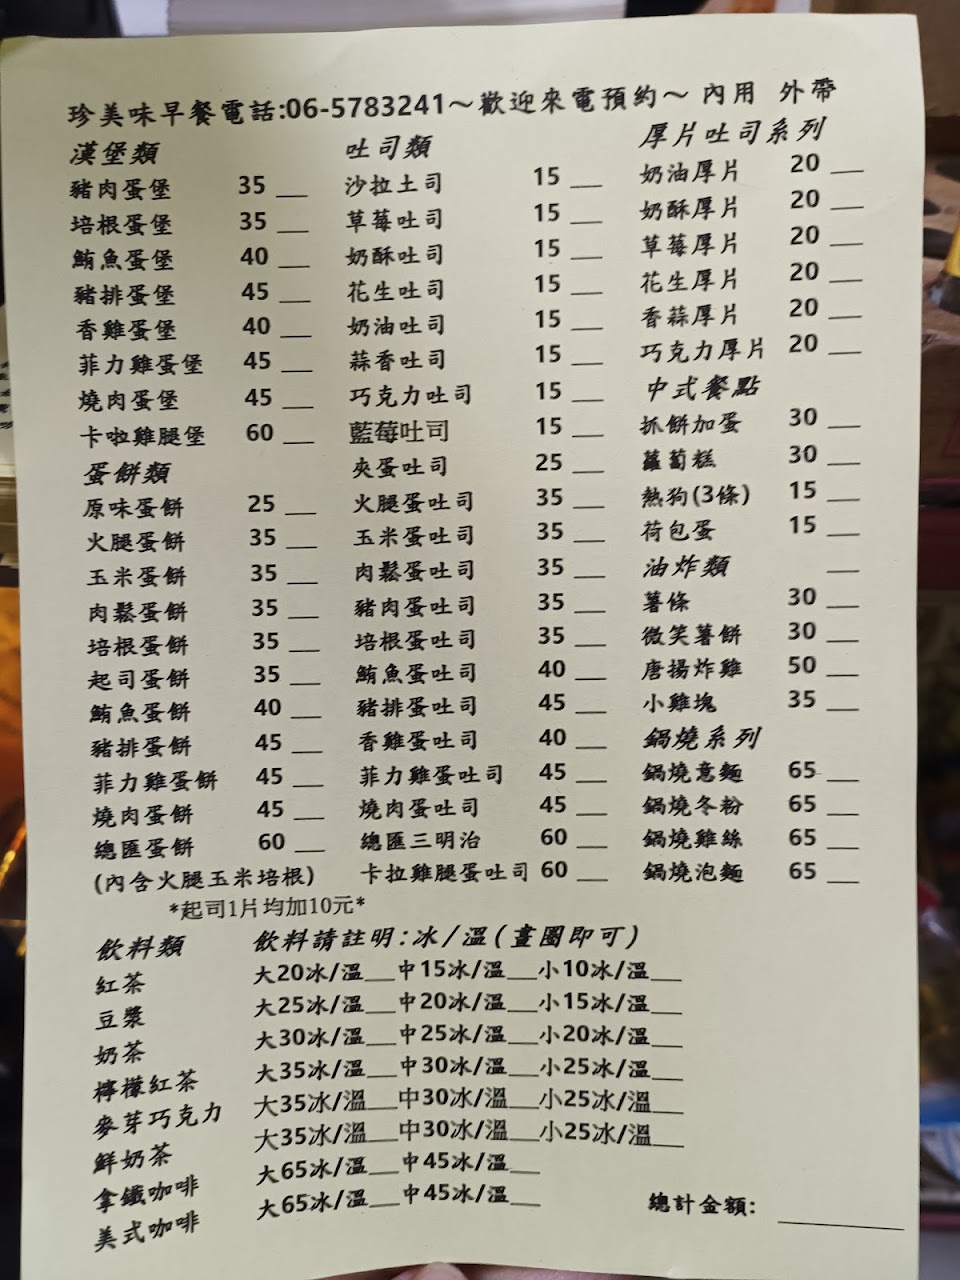 珍美味早餐電話:06-5783241～歡迎來電預約～ 內用 外帶
漢堡類
豬肉蛋堡 35 __
培根蛋堡 35 __
鮪魚蛋堡 40 __
豬排蛋堡 45 __
香雞蛋堡 40 __
菲力雞蛋堡 45 __
燒肉蛋堡 45 __
卡啦雞腿堡 60 __
蛋餅類
原味蛋餅 25 __
火腿蛋餅 35 __
玉米蛋餅 35 __
肉鬆蛋餅 35 __
培根蛋餅 35 __
起司蛋餅 35 __
鮪魚蛋餅 40 __
豬排蛋餅 45 __
菲力雞蛋餅 45 __
燒肉蛋餅 45 __
總匯蛋餅 60 __
(內含火腿玉米培根)
*起司1片均加10元*
吐司類
沙拉土司 15 __
草莓吐司 15 __
奶酥吐司 15 __
花生吐司 15 __
奶油吐司 15 __
蒜香吐司 15 __
巧克力吐司 15 __
藍莓吐司 15 __
夾蛋吐司 25 __
火腿蛋吐司 35 __
玉米蛋吐司 35 __
肉鬆蛋吐司 35 __
豬肉蛋吐司 35 __
培根蛋吐司 35 __
鮪魚蛋吐司 40 __
豬排蛋吐司 45 __
香雞蛋吐司 40 __
菲力雞蛋吐司 45 __
燒肉蛋吐司 45 __
總匯三明治 60 __
卡拉雞腿蛋吐司 60 __
厚片吐司系列
奶油厚片 20 __
奶酥厚片 20 __
草莓厚片 20 __
花生厚片 20 __
香蒜厚片 20 __
巧克力厚片 20 __
中式餐點
抓餅加蛋 30 __
蘿蔔糕 30 __
熱狗(3條) 15 __
荷包蛋 15 __
油炸類 __
薯條 30 __
微笑薯餅 30 __
唐揚炸雞 50 __
小雞塊 35 __
鍋燒系列
鍋燒意麵 65 __
鍋燒冬粉 65 __
鍋燒雞絲 65 __
鍋燒泡麵 65 __
飲料類 飲料請註明:冰/溫(畫圈即可)
紅茶 大20冰/溫__中15冰/溫__小10冰/溫__
豆漿 大25冰/溫__中20冰/溫__小15冰/溫__
奶茶 大30冰/溫__中25冰/溫__小20冰/溫__
檸檬紅茶 大35冰/溫__中30冰/溫__小25冰/溫__
麥芽巧克力 大35冰/溫__中30冰/溫__小25冰/溫__
鮮奶茶 大35冰/溫__中30冰/溫__小25冰/溫__
拿鐵咖啡 大65冰/溫__中45冰/溫__
美式咖啡 大65冰/溫__中45冰/溫__
總計金額: ________